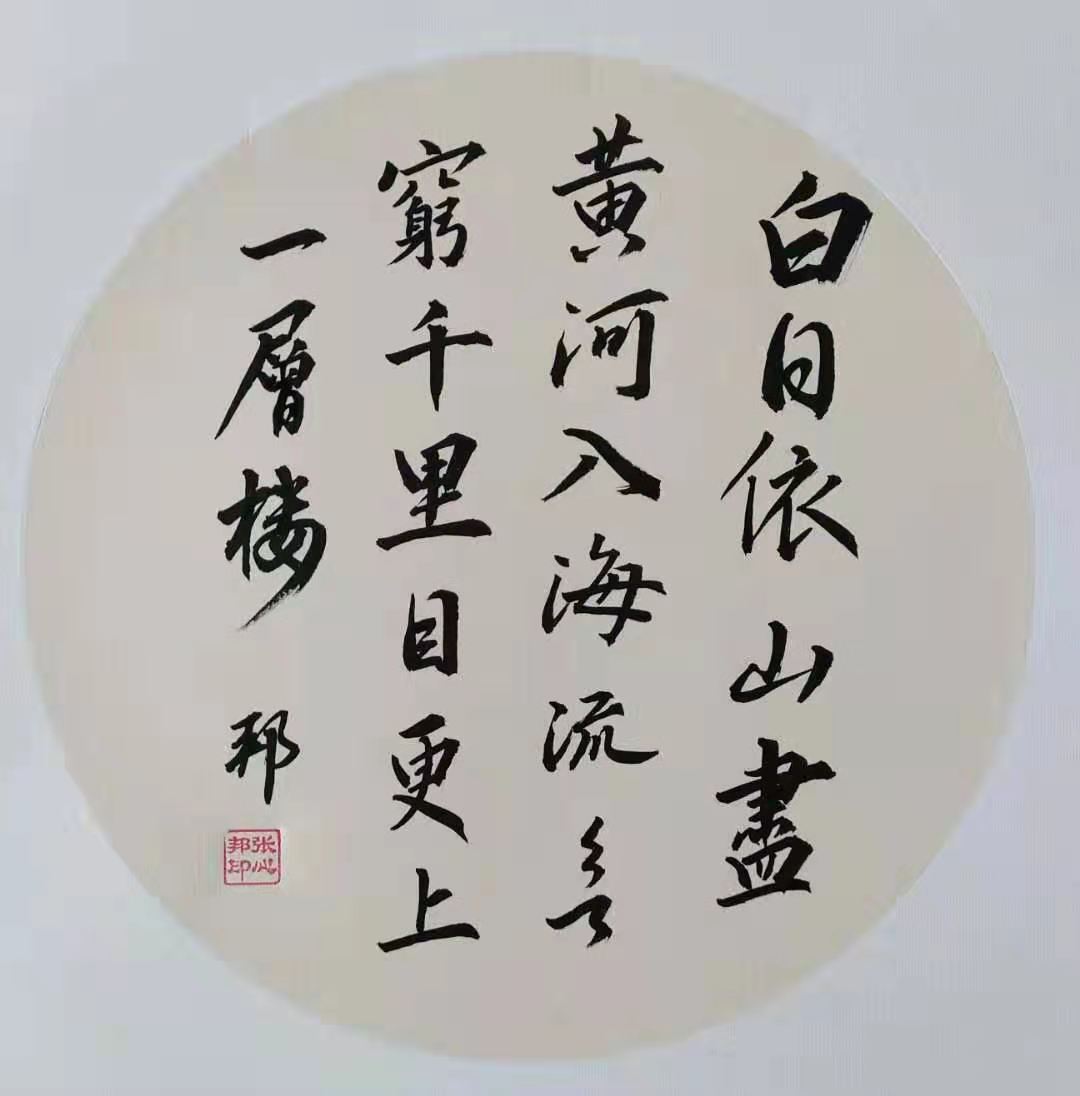 白日依山盡
黄河入海流欲
窮千里目更上
一層楼
邦
张心邦印